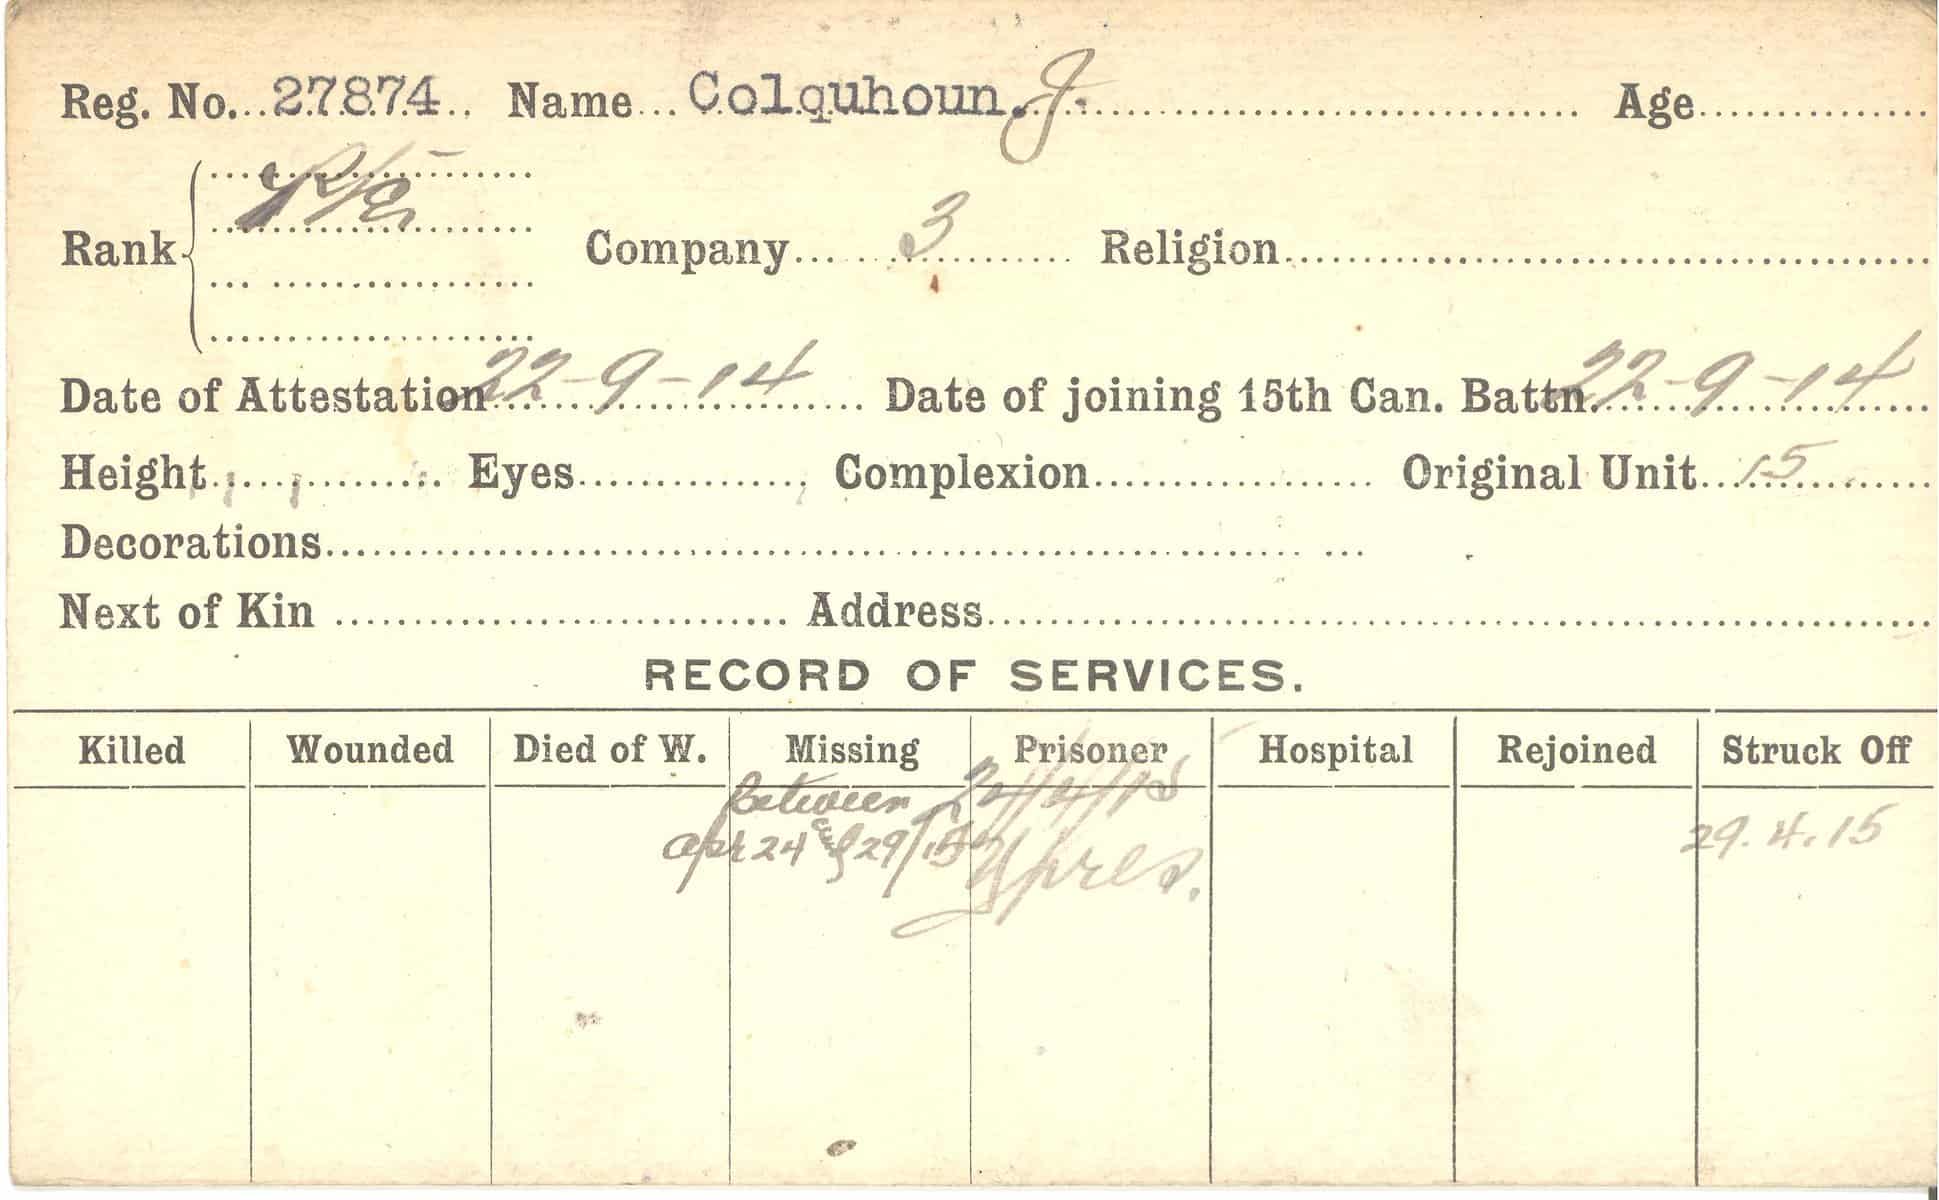 Reg. No. 27874 Name Colquhoun. J. Age
Rank Pte Company 3 Religion
Date of Attestation 22-9-14 Date of joining 15th Can. Battn. 22-9-14
Height Eyes Complexion Original Unit 15
Decorations
Next of Kin Address
RECORD OF SERVICES.
Killed Wounded Died of W. Missing Prisoner Hospital Rejoined Struck Off
between 24/4/15
apr 24 and 29/15 Ypres. 29.4.15